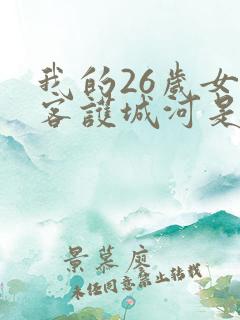 我的26岁女
客护城河是
景慕廖
未经同意禁止转载